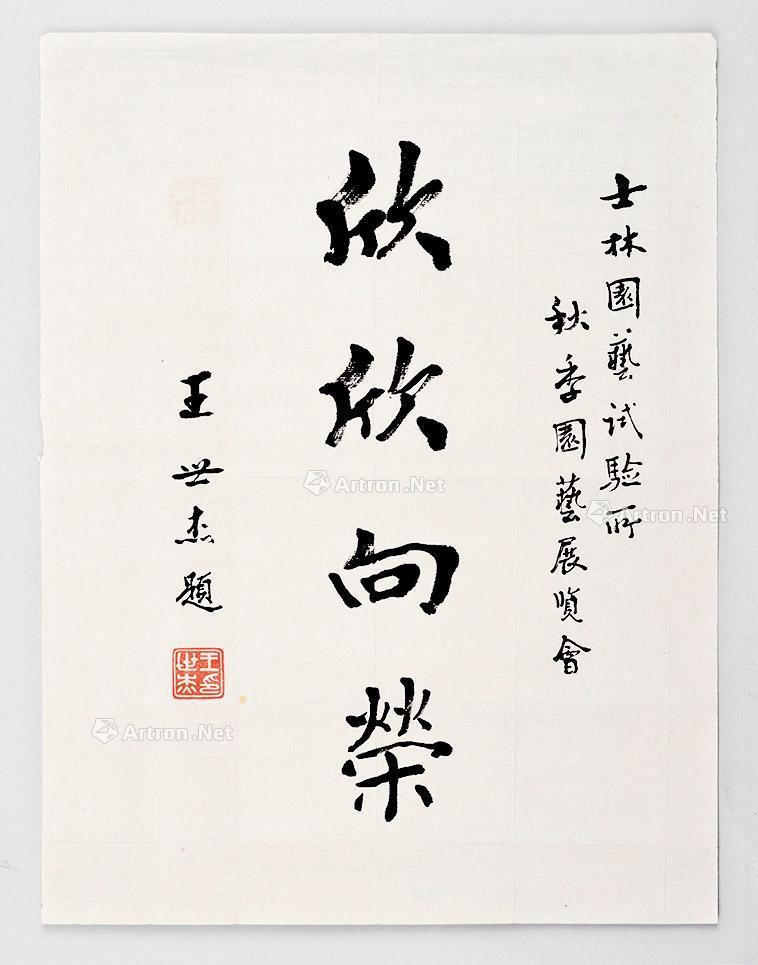 士林園藝試驗所
秋季園藝展覽會
欣欣向榮
王世杰題
王世杰印
Artron.Net
Artron.Net
Artron.Net